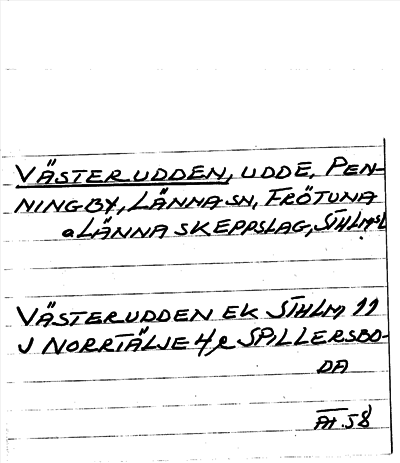 VÄSTERUDDEN, UDDE, PEN-
NINGBY, LÄNNA SN, FRÖTUNA
a LÄNNA SKEPPSLAG, STHLMSL
VÄSTERUDDEN EK STHLM 11
J NORRTÄLJE 4 SPILLERSBO-
DA
58